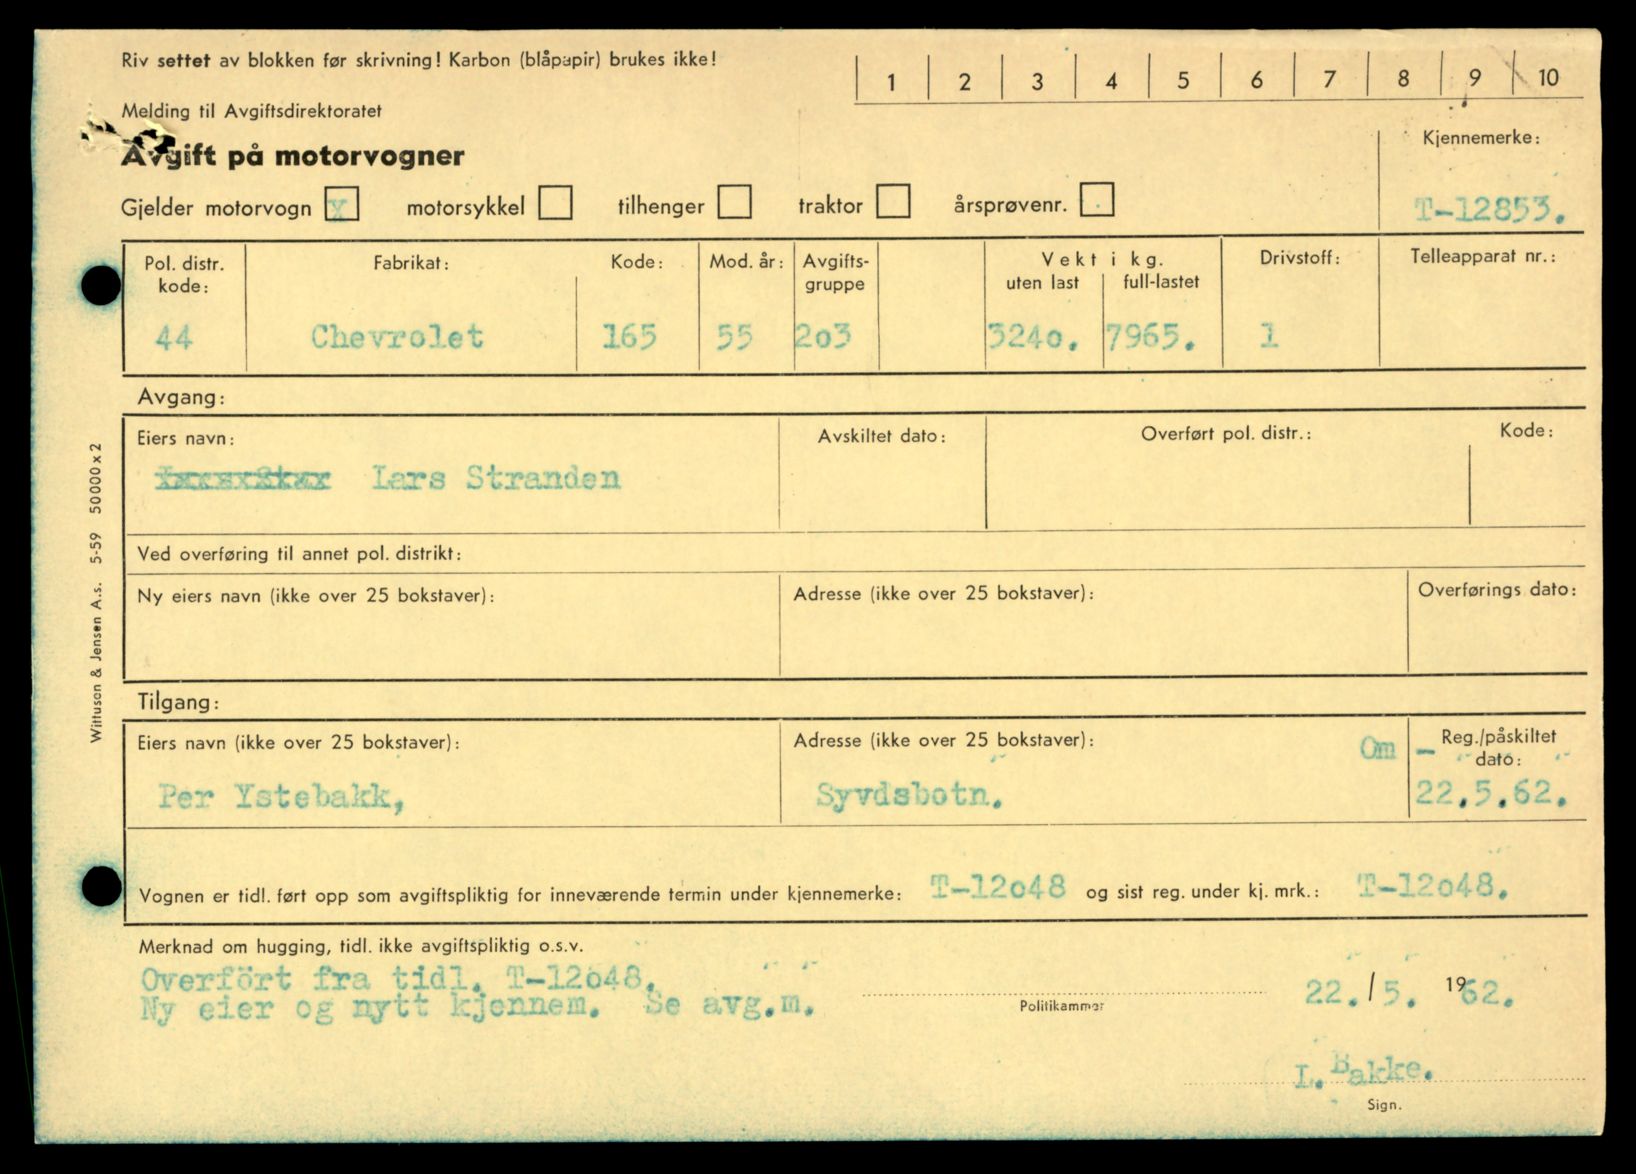 Riv settet av blokken før skrivning! Karbon (blåpapir) brukes ikke!
1 2 3 4 5 6 7 8 9 10
Melding til Avgiftsdirektoratet
Avgift på motorvogner
Kjennemerke:
Gjelder motorvogn X motorsykkel tilhenger traktor årsprøvenr.
T-12853.
Pol. distr. kode: Fabrikat: Kode: Mod. år: Avgifts-gruppe Vekt i kg. uten last full-lastet Drivstoff: Telleapparat nr.:
44 Chevrolet 165 55 2o3 324o. 7965. 1
Avgang:
Eiers navn: Avskiltet dato: Overført pol. distr.: Kode:
Lars Stranden
Ved overføring til annet pol. distrikt:
Ny eiers navn (ikke over 25 bokstaver): Adresse (ikke over 25 bokstaver): Overførings dato:
Tilgang:
Eiers navn (ikke over 25 bokstaver): Adresse (ikke over 25 bokstaver): Om - Reg./påskiltet dato:
Per Ystebakk, Syvdsbotn. 22.5.62.
Vognen er tidl. ført opp som avgiftspliktig for inneværende termin under kjennemerke: T-12o48 og sist reg. under kj. mrk.: T-12o48.
Merknad om hugging, tidl. ikke avgiftspliktig o.s.v.
Overfört fra tidl. T-12o48.
Ny eier og nytt kjennem. Se avg.m.
Politikammer
22. / 5. 1962.
L. Bakke.
Sign.
Wittusen & Jensen A.s. 5-59 50000 x 2